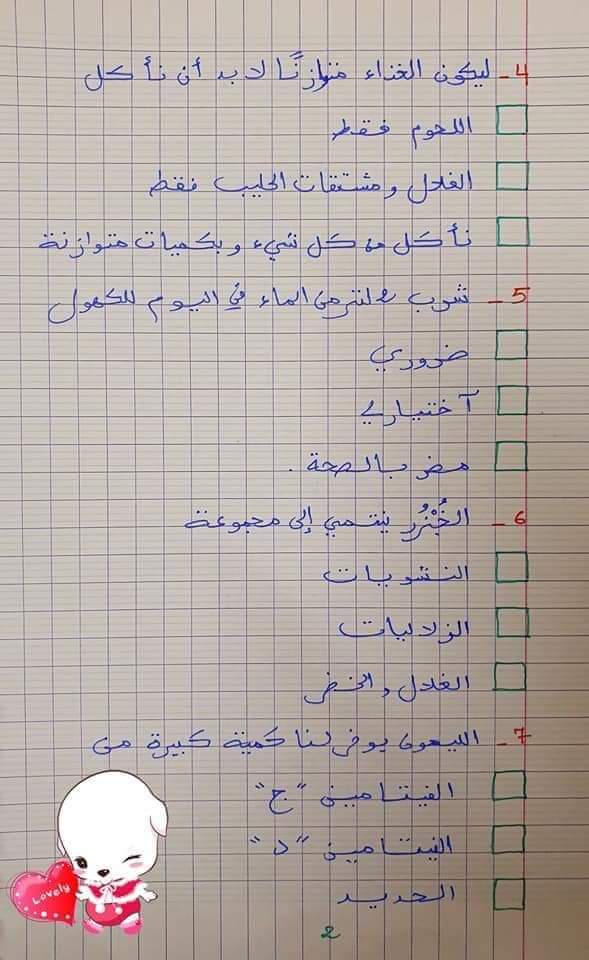 4- ليكون الغذاء متوازنًا لا بد أن نأكل
اللحوم فقط
الغلال ومشتقات الحليب فقط
نأكل من كل شيء وبكميات متوازنة
5- شرب 2 لتر من الماء في اليوم للكهول
ضروري
آختياري
مضر بالصحة.
6- الخُبْزُ ينتمي إلى مجموعة
النشويات
الزلاليات
الغلال والخضر
7- الليمون يوفر لنا كمية كبيرة من
الفيتامين "ج"
الفيتامين "د"
الحديد
Lovely
2